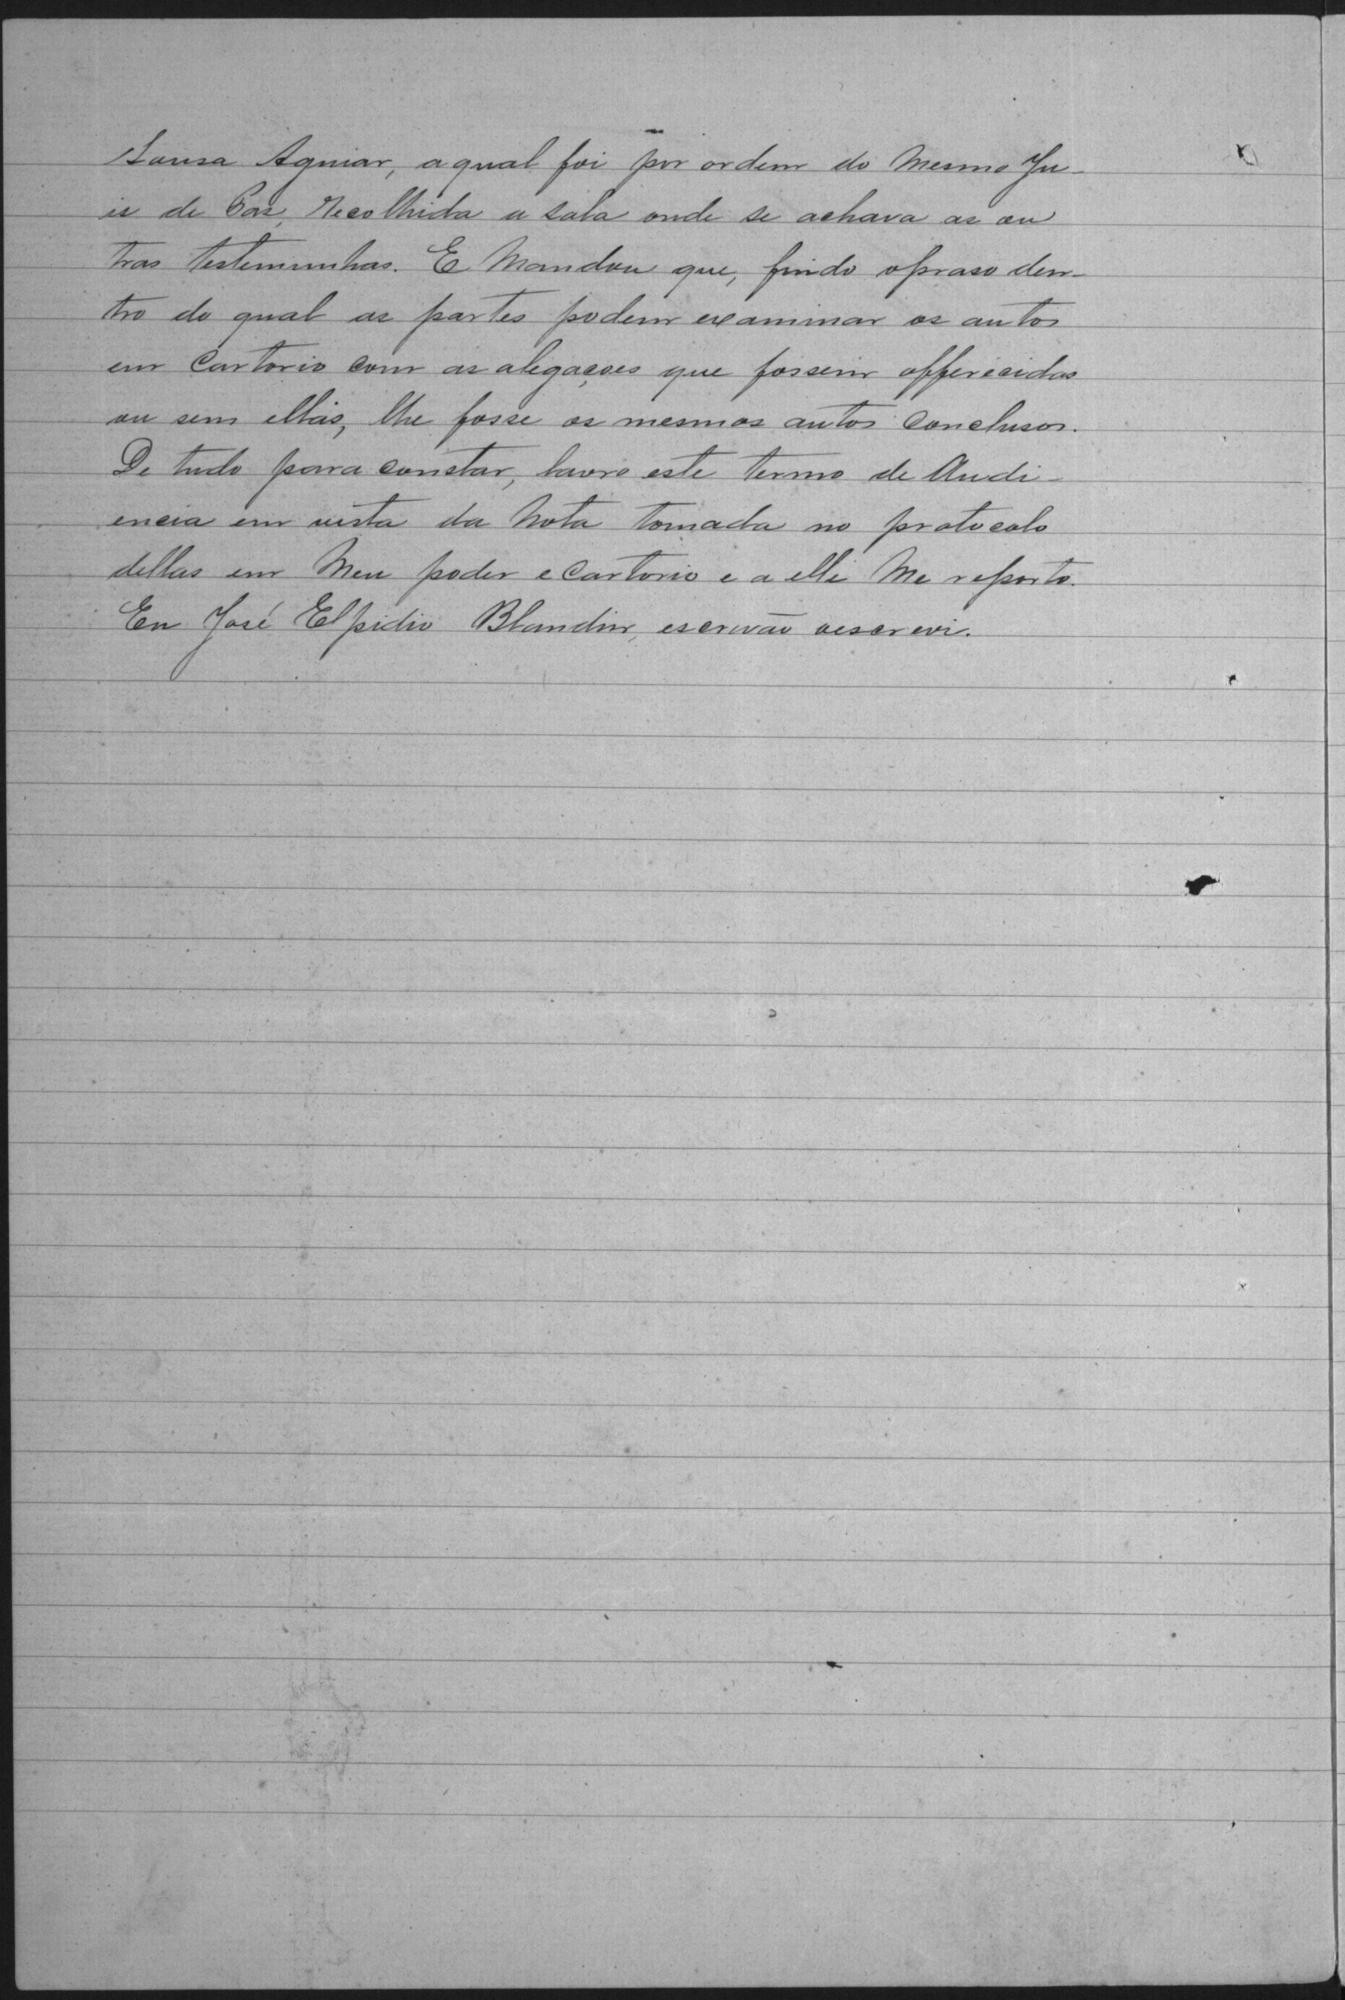 Sousa Aguiar, a qual foi por ordem do Mesmo Ju-
is de Pas, Recolhida a sala onde se achava as ou
tras testemunhas. E Mandou que, findo o praso den-
tro do qual as partes podem examinar os autos
em Cartorio com as alegações que fossem offerecidas
ou sem ellas, lhe fosse os mesmos autos Conclusos.
De tudo para constar, lavro este termo de Audi-
encia em vista da Nota tomada no protocolo
dellas em Meu poder e Cartorio e a elle Me reporto.
Eu José Elpidio Blandin, escrivão o escrevi.